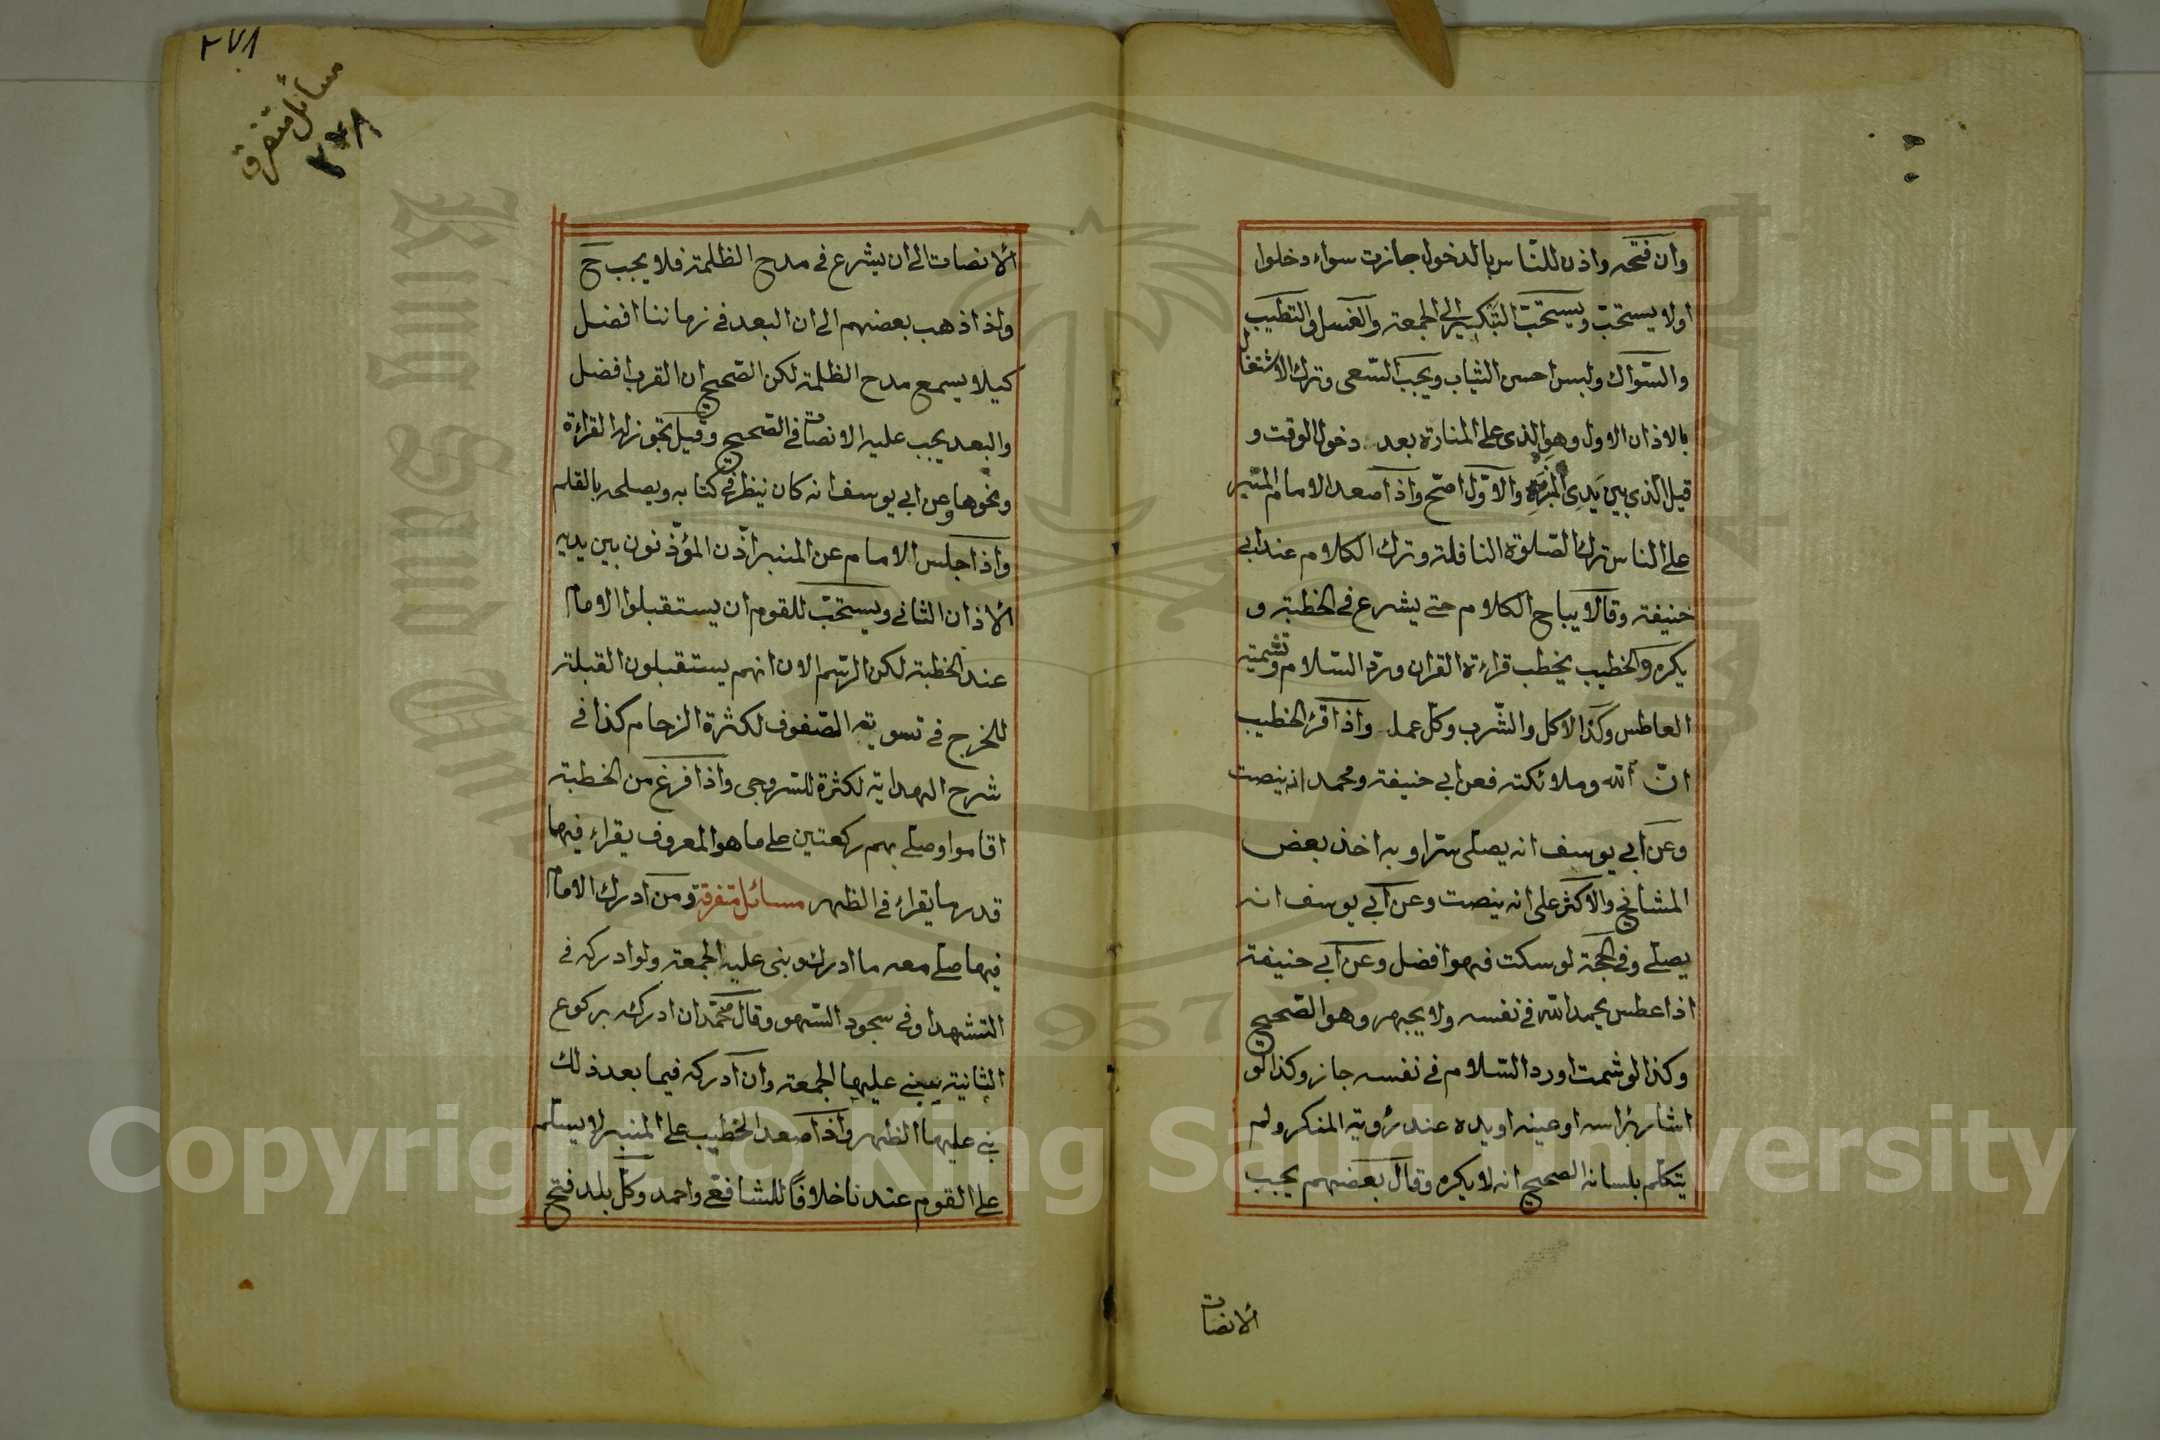 وان فتحه واذن للناس بالدخول جازت سواء دخلوا
اولا يستحبّ ويستحبّ التبكير الى الجمعة والغسل والتطيب
والسّواك ولبس احسن الثياب ويجب السّعى وترك الاشتغال
بالاذان الاول وهو الذى على المنارة بعد دخول الوقت و
قيل الذى بين يدى المنبر والاوّل اصحّ واذا صعد الامام المنبر
على الناس ترك الصّلوة النافلة وترك الكلام عند ابى
حنيفة وقالا يباح الكلام حتى يشرع فى الخطبة و
يكره والخطيب يخطب قراءة القران وردّ السّلام وتشميته
العاطس وكذا الاكل والشّرب وكلّ عمل واذا قرء الخطيب
انّ الله وملائكته فعن ابى حنيفة ومحمد انه ينصت
وعن ابى يوسف انه يصلى سرّا وبه اخذ بعض
المشائخ والاكثر على انه ينصت وعن ابى يوسف انه
يصلّى وفى الحجّة لو سكت فهو افضل وعن ابى حنيفة
اذا عطس يحمد الله فى نفسه ولا يجهر وهو الصّحيح
وكذا لو شمت او رد السّلام فى نفسه جاز وكذا لو
اشار برأسه او عينه او يده عند رؤية المنكر ولم
يتكلّم بلسانه الصحيح انه لا يكره وقال بعضهم يجب
الانصات
٢٧٨
مسائل متفرق
٢٧٨
الانصات الى ان يشرع فى مدح الظلمة فلا يجب ح
واذا ذهب بعضهم الى ان البعد فى زماننا افضل
كيلا يسمع مدح الظلمة لكن الصّحيح ان القرب افضل
والبعد يجب عليه الانصات فى الصّحيح وقيل تجوز له القراءة
ونحوها وعن ابى يوسف انه كان ينظر فى كتابه ويصلحه بالقلم
واذا جلس الامام عن المنبر اذّن المؤذّنون بين يديه
الاذان الثانى ويستحبّ للقوم ان يستقبلوا الامام
عند الخطبة لكن الرّسم الان انهم يستقبلون القبلة
للخرج فى تسوية الصّفوف لكثرة الزحام كذا فى
شرح الهداية لكثرة للسروجى واذا فرغ من الخطبة
اقاموا وصلّى بهم ركعتين على ما هو المعروف يقراء فيهما
قدر ما يقراء فى الظهر مسائل متفرقة ومن ادرك الامام
فيها صلى معه ما ادرك وبنى عليه الجمعة ولو ادركه فى
التشهد او فى سجود السّهو وقال محمّد ان ادركه بركوع
الثانية يبنى عليها الجمعة وان ادركه فيما بعد ذلك
بنى عليها الظهر واذا صعد الخطيب على المنبر لا يسلّم
على القوم عندنا خلافاً للشافعى واحمد وكلّ بلد فتح
Copyright © King Saud University
King Saud University
1957